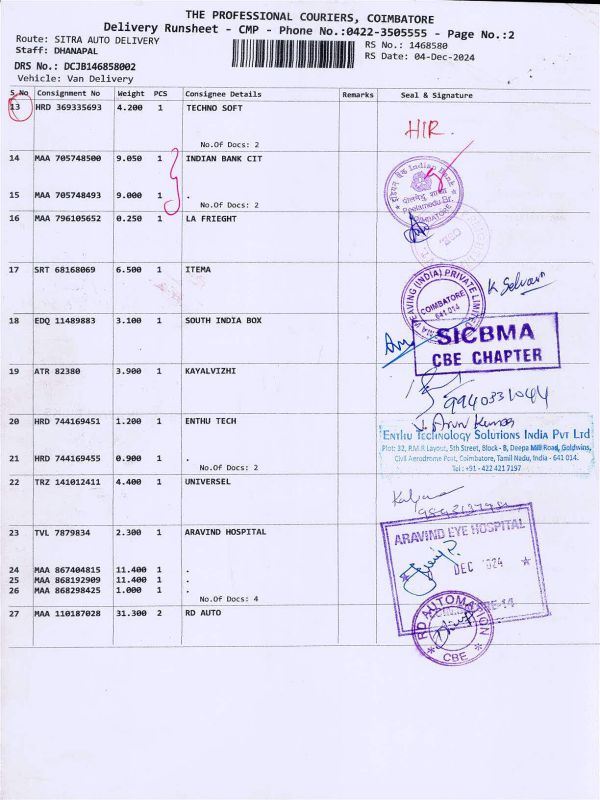 THE PROFESSIONAL COURIERS, COIMBATORE
Delivery Runsheet - CMP - Phone No.:0422-3505555 - Page No.:2
Route: SITRA AUTO DELIVERY
Staff: DHANAPAL
RS No.: 1468580
RS Date: 04-Dec-2024
DRS No.: DCJB146858002
Vehicle: Van Delivery
S.No Consignment No Weight PCS Consignee Details Remarks Seal & Signature
13 HRD 369335693 4.200 1 TECHNO SOFT
HIR.
No.Of Docs: 2
14 MAA 705748500 9.050 1 INDIAN BANK CIT
Indian Bank
Peelamedu Br.
COIMBATORE
15 MAA 705748493 9.000 1 .
No.Of Docs: 2
16 MAA 796105652 0.250 1 LA FRIEGHT
17 SRT 68168069 6.500 1 ITEMA
WEAVING (INDIA) PRIVATE LIMITED
COIMBATORE
641 014
K Selvan
18 EDQ 11489883 3.100 1 SOUTH INDIA BOX
SICBMA
CBE CHAPTER
19 ATR 82380 3.900 1 KAYALVIZHI
9940331044
20 HRD 744169451 1.200 1 ENTHU TECH
J. Arun Kumar
Enthu Technology Solutions India Pvt Ltd
Plot: 32, P.M.R Layout, 5th Street, Block - B, Deepa Mill Road, Goldwins,
Civil Aerodrome Post, Coimbatore, Tamil Nadu, India - 641 014.
Tel : +91 - 422 421 7197
21 HRD 744169455 0.900 1 .
No.Of Docs: 2
22 TRZ 141012411 4.400 1 UNIVERSEL
23 TVL 7879834 2.300 1 ARAVIND HOSPITAL
ARAVIND EYE HOSPITAL
DEC 2024
24 MAA 867404815 11.400 1 .
25 MAA 868192909 11.400 1 .
26 MAA 868298425 1.000 1 .
No.Of Docs: 4
27 MAA 110187028 31.300 2 RD AUTO
RD AUTOMATION
CBE